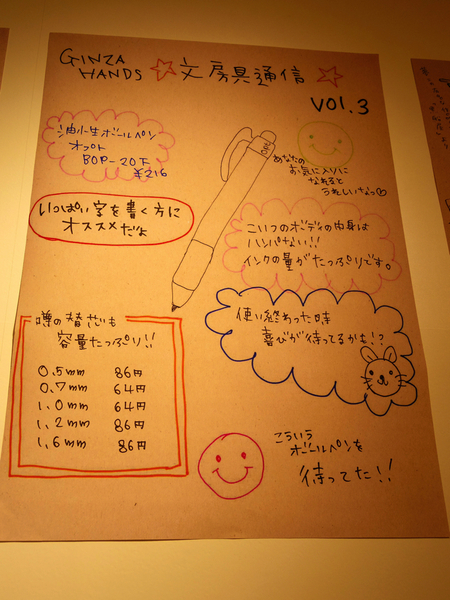 GINZA
HANDS
文房具通信
VOL.3
油性ボールペン
オプト
BOP-20F
¥216
あなたの
お気に入りに
なれると
うれしいなっ
いっぱい字を書く方に
オススメだよ
こいつのボディの中身は
ハンパない!!
インクの量がたっぷりです。
使い終わった時
喜びが待ってるかも!?
噂の替芯も
容量たっぷり!!
0.5mm 86円
0.7mm 64円
1.0mm 64円
1.2mm 86円
1.6mm 86円
こういう
ボールペンを
待ってた!!